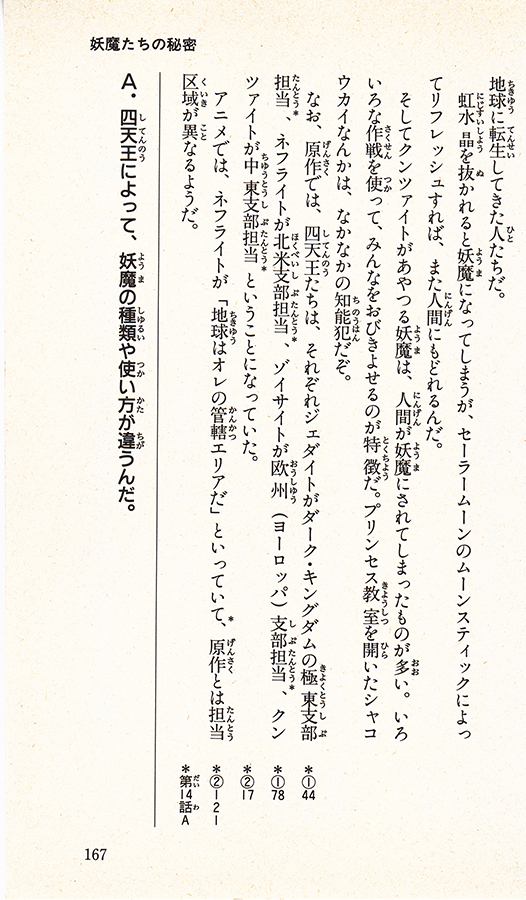 妖魔たちの秘密
地球に転生してきた人たちだ。
虹水晶を抜かれると妖魔になってしまうが、セーラームーンのムーンスティックによっ
てリフレッシュすれば、また人間にもどれるんだ。
そしてクンツァイトがあやつる妖魔は、人間が妖魔にされてしまったものが多い。いろ
いろな作戦を使って、みんなをおびきよせるのが特徴だ。プリンセス教室を開いたシャコ
ウカイなんかは、なかなかの知能犯だぞ。
なお、原作では、四天王たちは、それぞれジェダイトがダーク・キングダムの極東支部
担当*、ネフライトが北米支部担当*、ゾイサイトが欧州(ヨーロッパ)支部担当*、クン
ツァイトが中東支部担当*ということになっていた。
アニメでは、ネフライトが「地球はオレの管轄エリアだ」といっていて*、原作とは担当
区域が異なるようだ。
*①44
*①78
*②17
*②121
*第14話A
A. 四天王によって、妖魔の種類や使い方が違うんだ。
167